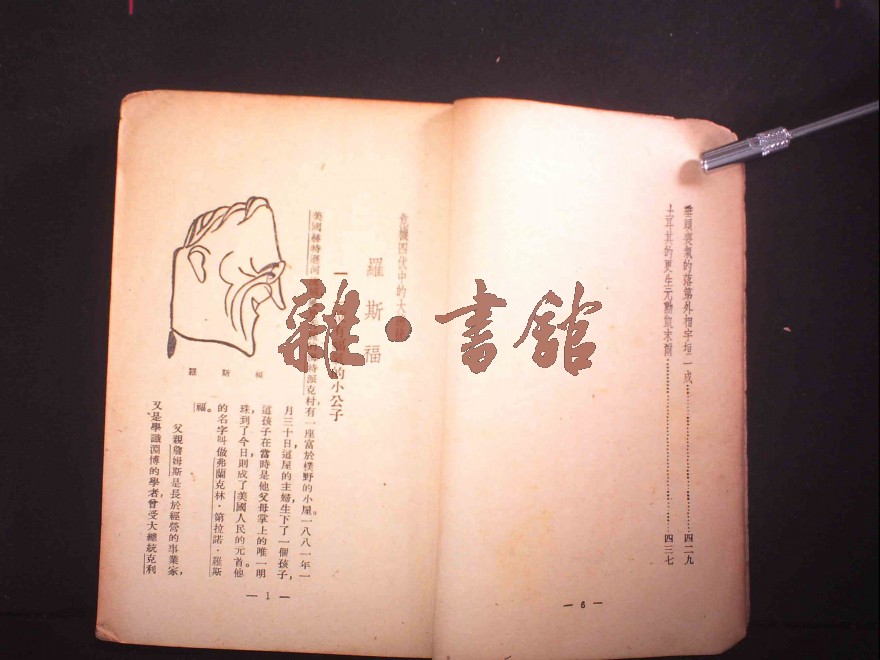 垂頭喪氣的落第外相宇垣一成……四二九
土耳其的更生元勳凱末爾……四三七
— 6 —
危機四伏中的大
羅斯福
一
的小公子
美國赫特遜河
特派克村,有一座富於樸野的小屋。一八八一年一
月三十日,這屋的主婦生下了一個孩子,
這孩子在當時是他父母掌上的唯一明
珠,到了今日則成了美國人民的元首。他
的名字叫做弗蘭克林·第拉諾·羅斯
福。
父親詹姆斯是長於經營的事業家,
又是學識淵博的學者,曾受大總統克利
羅斯福
— 1 —
雜·書館